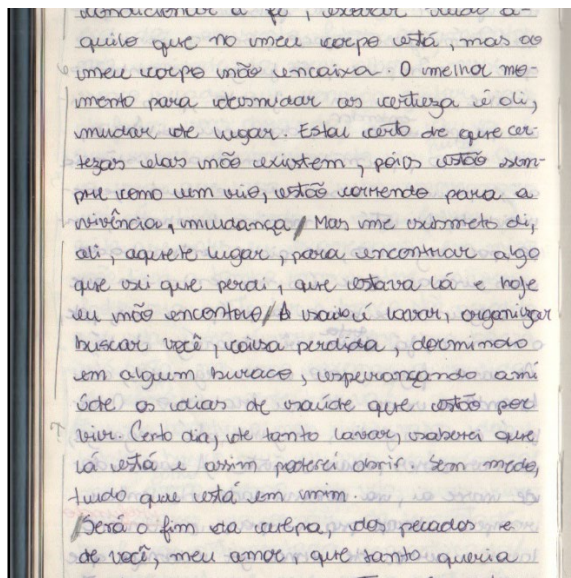 condicionar a fé, lavar tudo a-
quilo que no meu corpo está, mas ao
meu corpo não encaixa. O melhor mo-
mento para desnudar as certeza é ali,
mudar de lugar. Estai certo de que cer-
tezas elas não existem, póis estão sem-
pre como um rio, estão correndo para a
vivência, mudança / Mas me submeto di,
ali, aquele lugar, para encontrar algo
que sei que perdi, que estava lá e hoje
eu não encontro / A saída é lavar, organizar
buscar você, coisa perdida, dormindo
em algum buraco, esperançando amí
úde os dias de saúde que estão por
vir. Certo dia, de tanto lavar, saberei que
lá está e assim poderei abrir. Sem medo,
tudo que está em mim.
/ Será o fim da culpa, dos pecados e
de você, meu amor que tanto queria